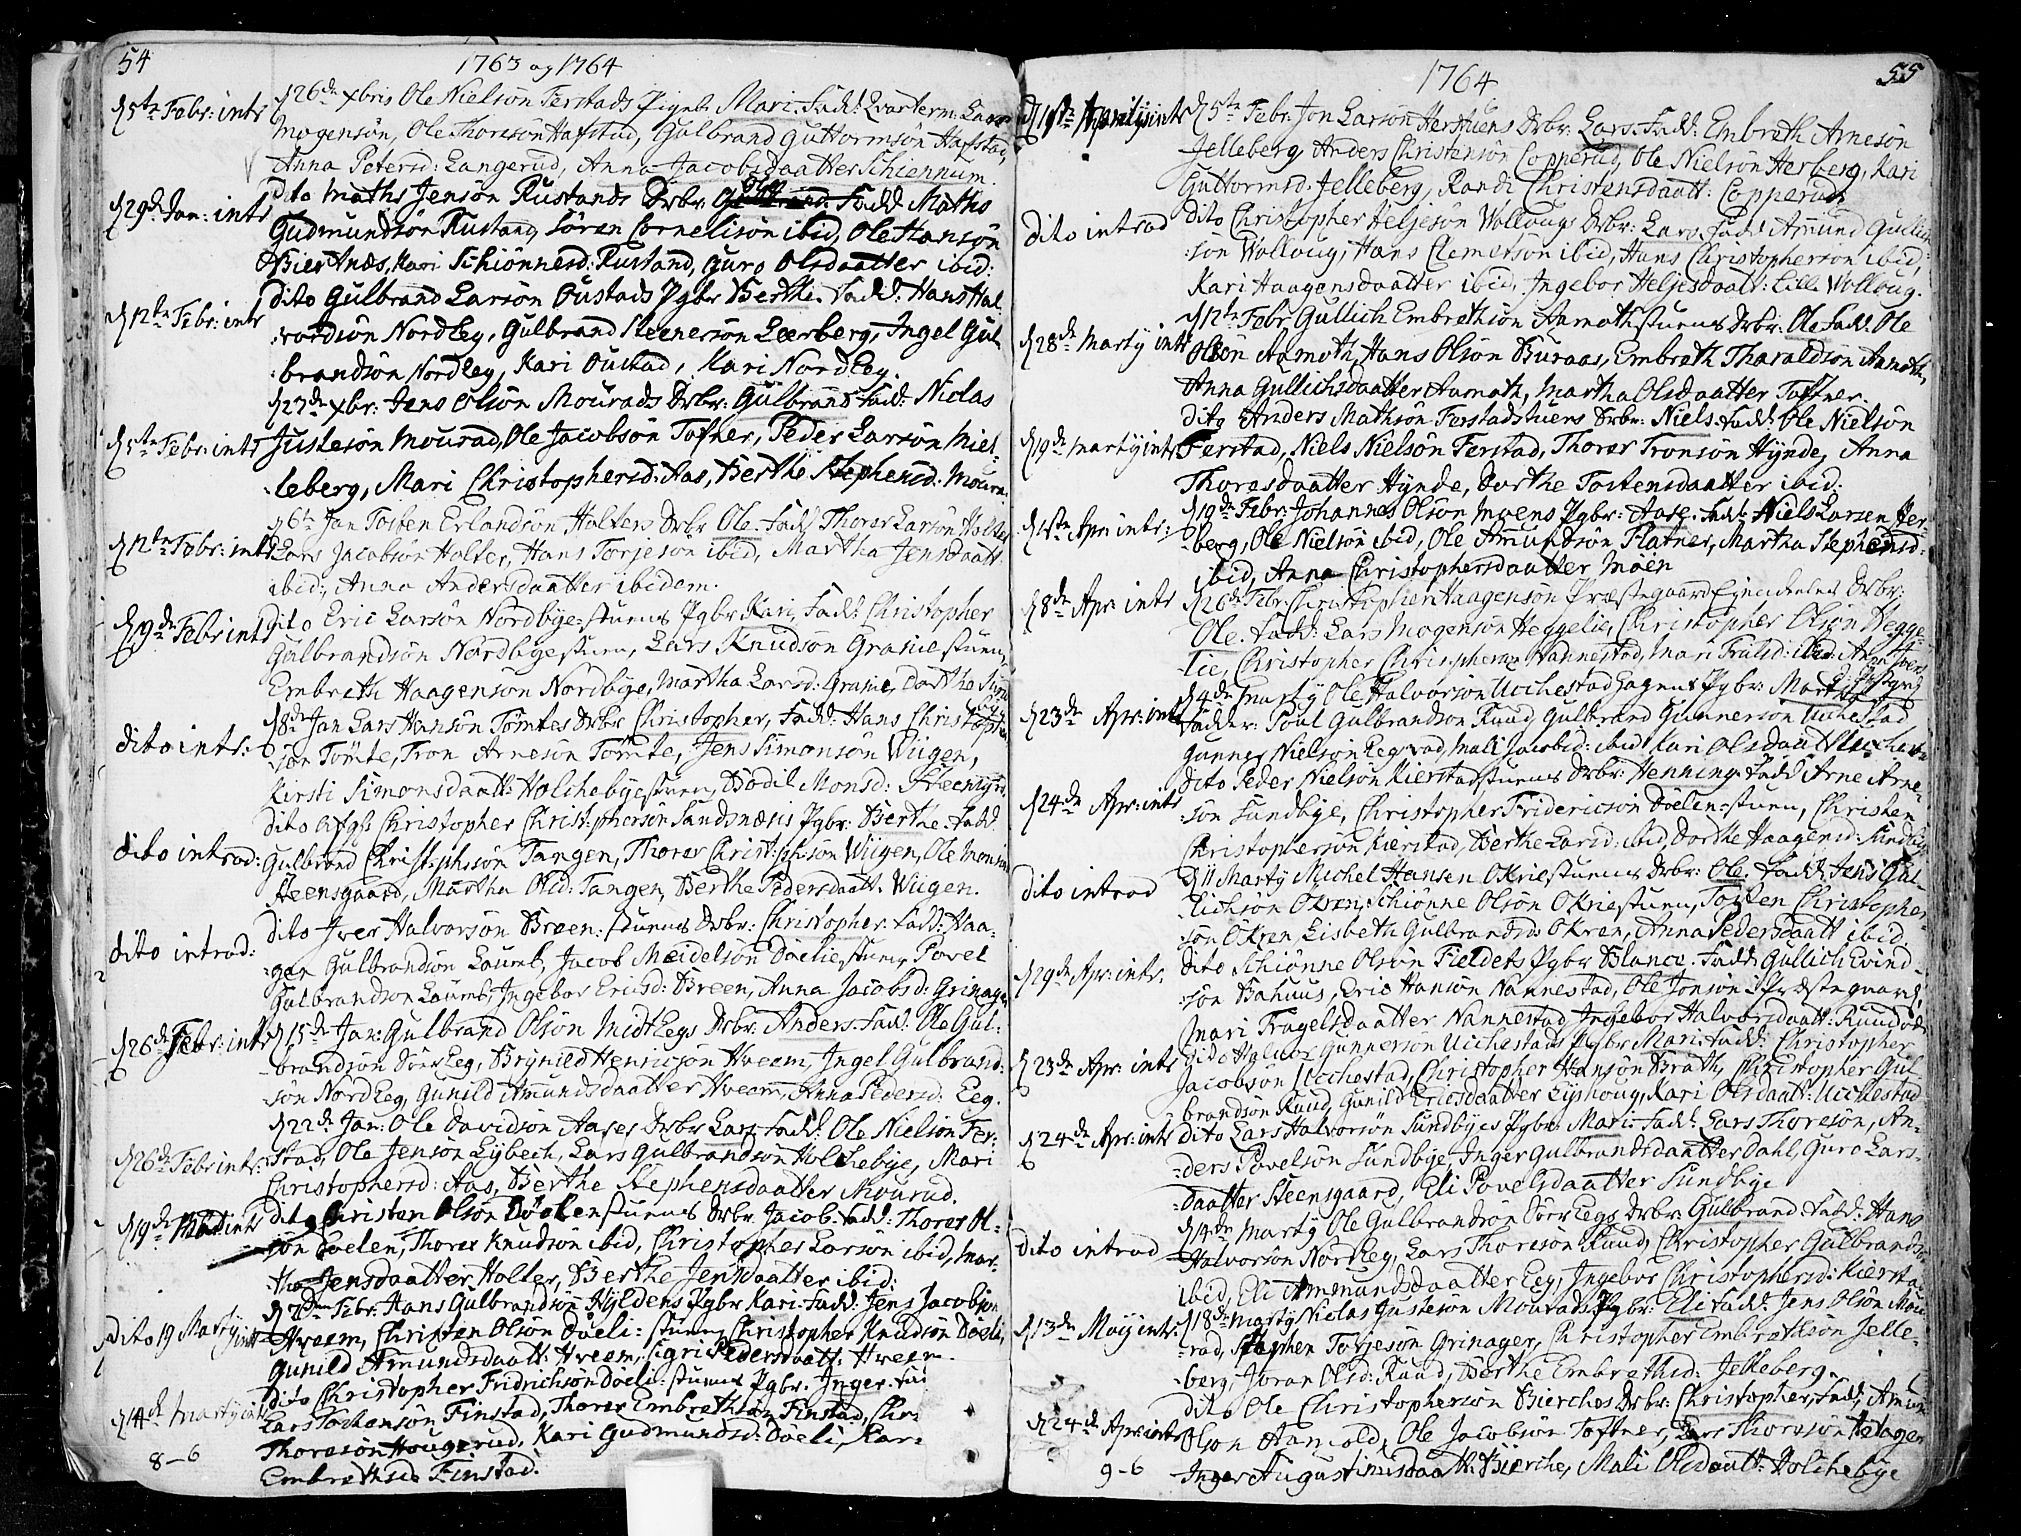 54
1763 og 1764
d 5te Febr: intr
d 26de xbris Ole Nielsön Ferstads Pigeb. Mari. Fadd: Qvarterm: Lars
Mogensön, Ole Thoresön Hafstad, Gulbrand Guttormsön Hafstad,
Anna Petersd: Langerud, Anna Jacobsdaatter Schiennum.
d 29de Jan: intr
dito Maths Jensön Rustands Drbr. Fadd. Maths
Gudmundsön Rustand, Sören Cornelisön ibid, Ole Hansön
BiertNæs, Kari Schiönnesd: Rustand, Guro Olsdaatter ibid:
d 12te Febr: intr
dito Gulbrand Larsön Oustads Pgbr Berthe. Fadd: Hans Hal-
vordsön Nordbey, Gulbrand Steenersön Leerberg, Ingel Gul-
brandsön Nordbey, Kari Oustad, Kari Nordbey.
d 27de xbr: Jens Olsön Mourads Drbr: Gulbrand Fadd: Niclas
d 5te Febr: intr
Justesön Mourad, Ole Jacobsön Tofner, Peder Larsön Miel-
leberg, Mari Christophersd: Aas, Berthe Stephensd: Mourad.
d 6te Jan Tosten Erlandsön Holters Drbr Ole. Fadd Thorer Larsön Holter
d 12te Febr: intr
Lars Jacobsön Holter, Hans Torjesön ibid, Martha Jensdaatt:
ibid:, Anna Andersdaatter ibidem.
d 19de Febr intr
dito Eric Larsön Nordbye=stuens Pgbr Kari, Fadd: Christopher
Gulbrandsön Nordbyestuen, Lars Knudsön Grasiestuen,
Embreth Haagensön Nordbye, Martha Larsd: Grasie, Dorthe
d 8de Jan Lars Hansön Tömtes Drbr Christopher, Fadd: Hans Christopher
dito intr:
sön Tömte, Tron Arnesön Tömte, Jens Simonsön Wiigen,
Kirsti Simonsdaatt: Holchebyestuen, Bodil Monsd:
dito Christopher Christophersön Sandsnæsis Pgbr: Berthe. Fadd
dito introd:
Gulbrand Christophsön Tangen, Thorer Christophsön Wiigen, Ole Monsön
Steensgaard, Martha Olsd: Tangen, Berthe Pedersdaatt. Wiigen.
dito Iver Halvorsön Breen: stuens Drbr: Christopher. Fadd: Haa-
dito introd:
gen Gulbrandsön Laumb, Jacob Meidelsön Döelie,stuen, Povel
Gulbrandsön Laumb, Ingebor Ericsd: Breen, Anna Jacobsd: Grinager
d 26de Febr: intr
d 15de Jan: Gulbrand Olsön MidtEegs Drbr: Anders. Fad: Ole Gul-
brandsön SörEeg, Brÿnild Henricsön Hveem, Ingel Gulbrand-
sön NordEeg, Gunild Amundsdaatter Hveem, Anna Pedersd: Eeg.
d 22de Jan: Ole Davidsön Aases Drbr Lars. Fadd: Ole Nielsön Fer-
d 26de Febr intr:
stad, Ole Jensön Lybech, Lars Gulbrandsön Holchebye, Mari
Christophersd: Aas, Berthe Stephensdaatter Mourud.
d 19de intr
dito Christen Olsön Döelenstuens Drbr Jacob: Fadd: Thorer Ol-
sön Döelen, Thorer Knudsön ibid, Christopher Larsön ibid, Mar-
the Jensdaatter Holter, Berthe Jensdaatter ibid:
Febr: Hans Gulbrandsön Hÿldens Pgbr Kari. Fadd: Jens Jacobsön
Dito 19 Martÿ intr
Hveem, Christen Olsön Döeli: stuen, Christopher Knudsön Döeli,
Gunild Amundsdaatt: Hveem, Sigri Pedersdaatt: Hveem.
dito Christopher Fridrichsön Döeli: stuens Pgbr. Inger. Fad
d 14de Martÿ intr
Lars Tostensön Finstad, Thorer Embrethsön Finstad, Chr-
Thoresön Hougerud, Kari Gudmundsd: Döeli, Kar-
8-6
Embrethsd Finstad.
55
1764
Aprilÿ intr
d 5te Febr. Jon Larsön Herstuens Drbr: Lars. Fadd: Embreth Arnesön
Jelleberg, Anders Christensön Copperud, Ole Nielsön Herberg, Kari
Guttormsd: Jelleberg, Randi Christensdaatt: Copperud
dito introd
dito Christopher Heljesön Wollougs Drbr: Lars Fadd Amund Gullich-
sön Wolloug, Hans Clemetsön ibid, Hans Christophersön ibid,
Kari Haagensdaatter ibid, Ingebor Heljesdaatt: Lille Wolloug.
d 28de Marty intr
d 12te Febr Gullich Embrethsön Aamothstuens Drbr: Ole Fadd. Ole
Olsön Aamoth, Hans Olsön Buraas, Embreth Tharaldsön Aamoth,
Anna Gullichsdaatter Aamoth, Martha Olsdaatter Toftner.
dito Anders Mathsön Ferstadstuens Drbr: Niels. Fadd. Ole Nielsön
d 19de Martÿ intr
Ferstad, Niels Nielsön Ferstad, Thorer Tronsön Hÿnde, Anna
Thoresdaatter Hÿnde, Dorthe Tostensdaatter ibid.
d 19de Febr: Johannes Olsön Moens Pgbr: Aase. Fadd: Niels Larsen Her-
d 1ste Apr intr:
berg, Ole Nielsön ibid, Ole Amundsön Flatner, Martha Stephensd:
ibid, Anna Christophersdaatter Möen
d 8de Apr: intr
d 26de Febr: Christopher Haagensön Præstegaard Drbr:
Ole. Fadd: Lars Mogensön Heggelie, Christopher Olsön Hegge-
lie, Christopher Christophersön Nannestad, Mari ibid, Anne
d 4de Marty Ole Halvorsön Ucchestad Pgbr: Martha
d 23de Apr: intr
Fadder: Poul Gulbrandsön Ruud, Gulbrand Gunnersön Ucchestad
Gunner Nielsön Eegstad, Mali Jacobsd: ibid Kari Olsdaatt Ucchestad
dito Peder Nielsön Kierstadstuens Drbr: Henning. Fadd Arne Arne-
d 24de Apr: intr
sön Sundbye, Christopher Fridericsön Döelen=stuen, Christen
Christophersön Kierstad, Berthe Larsd: ibid, Dorthe Haagensd: Sundbye
d 11 Martÿ Michel Hansen Okriestuens Drbr: Ole. Fadd Jens Gul-
dito introd
lichsön Okren, Schiönne Olsön Okriestuen, Tosten Christopher-
sön Okren, Lisbeth Gulbrandsd: Okren, Anna Pedersdaatt ibid
d 29de Apr: intr.
dito Schiönne Olsön Fieldets Pgbr Blance. Fadd. Gullich Evind-
sön Bahuus, Eric Hansön Nannestad, Ole Jonsön Præstegaard,
Mari Tragelsdaatter Nannestad, Ingebor Halvorsdaatt: Ruud
d 23de Apr: intr
dito Halvor Gunnersön Ucchestads Pgbr Mari: Fadd: Christopher
Jacobsön Ucchestad, Christopher Hansön Brath, Christopher Gul-
brandsön Ruud, Gunild Ericsdaatter Lyshoug, Kari Olsdaatt: Ucchestad
d 24de Apr: intr
dito Lars Halvorsön Sundbyes Pgbr Mari: Fadd. Lars Thoresön, An-
ders Povelsön Sundbye, Inger Gulbrandsdaatter Dahl, Guro Lars-
daatter Steensgaard, Eli Povelsdaatter Sundbye
d 14de Martÿ Ole Gulbrandsön SörEegs Drbr: Gulbrand. Fadd. Hans
dito introd
Halvorsön NordEeg, Lars Thoresön Ruud, Christopher Gulbrandsön
ibid, Eli Ammundsdaatter Eeg, Ingebor Christophersd: Kierstad
d 13de Maij intr:
d 18de Marty Niclas Justesön Mourads Pgbr: Eli. Fadd: Jens Olsön Mou-
rad, Stephen Torjesön Grinager, Christopher Embrethsön Jelle-
berg, Joran Olsd: Ruud, Berthe Embrethsd: Jelleberg.
dito Ole Christophersön Bierches Drbr: Christopher, Fadd, Amun
d 24de Apr: intr
Olsön, Ole Jacobsön Toftner, Lars Thoresön
9-6
Inger Augustinusdaatt: Bierche, Mali Olsdaatt. Holchebye